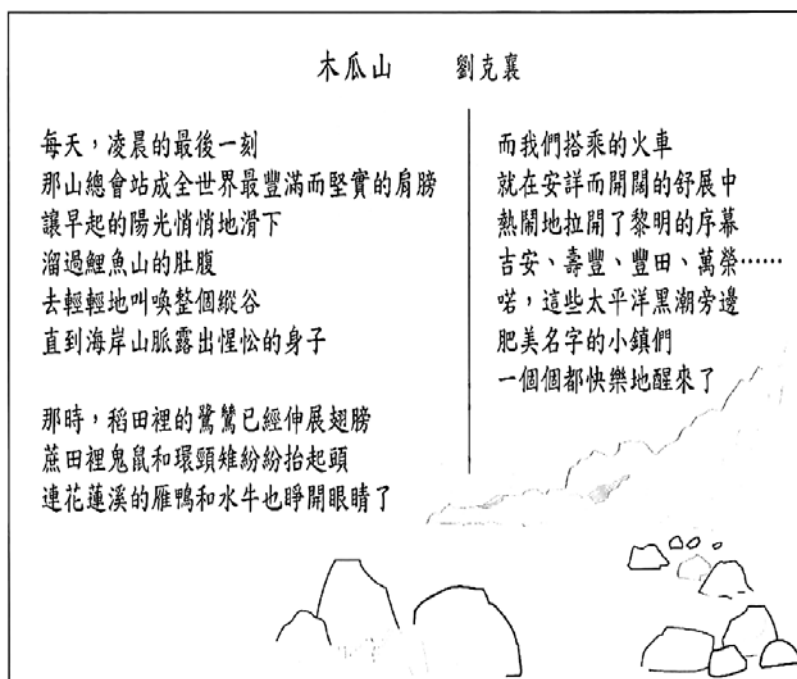 木瓜山 劉克襄
每天，凌晨的最後一刻
那山總會站成全世界最豐滿而堅實的肩膀
讓早起的陽光悄悄地滑下
溜過鯉魚山的肚腹
去輕輕地叫喚整個縱谷
直到海岸山脈露出惺忪的身子
那時，稻田裡的鷺鷥已經伸展翅膀
蔗田裡鬼鼠和環頸雉紛紛抬起頭
連花蓮溪的雁鴨和水牛也睜開眼睛了
而我們搭乘的火車
就在安詳而開闊的舒展中
熱鬧地拉開了黎明的序幕
吉安、壽豐、豐田、萬榮……
喏，這些太平洋黑潮旁邊
肥美名字的小鎮們
一個個都快樂地醒來了